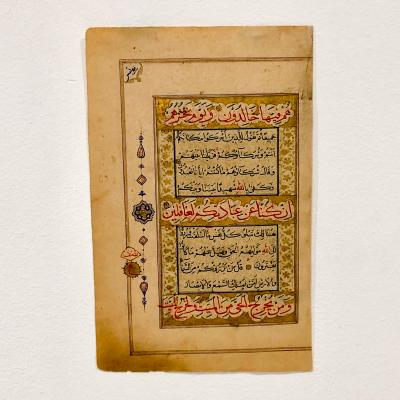 هم فيها خالدون ويوم نحشرهم
جميعا ثم نقول للذين أشركوا مكانكم
أنتم وشركاؤكم فزيلنا بينهم
وقال شركاؤهم ما كنتم إيانا تعبدون
فكفى بالله شهيدا بيننا وبينكم
إن كنا عن عبادتكم لغافلين
هنالك تبلو كل نفس ما أسلفت وردوا
إلى الله مولاهم الحق وضل عنهم ما كانوا
يفترون قل من يرزقكم من السماء
والأرض أمن يملك السمع والأبصار
ومن يخرج الحي من الميت ويخرج الميت